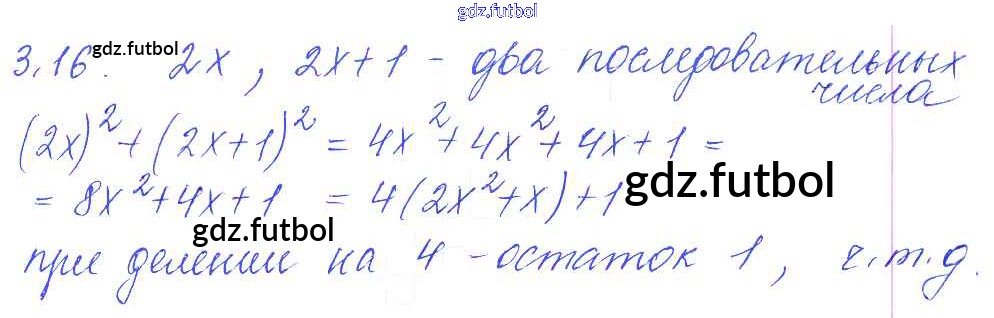 gdz.futbol
3.16. gdz.futbol 2x, 2x+1 - два последовательных
числа
(2x)² + (2x+1)² = 4x² + 4x² + 4x + 1 =
= 8x² + 4x + 1 = 4(2x² + x) + 1 gdz.futbol
gdz.futbol
при делении на 4 - остаток 1, ч.т.д.